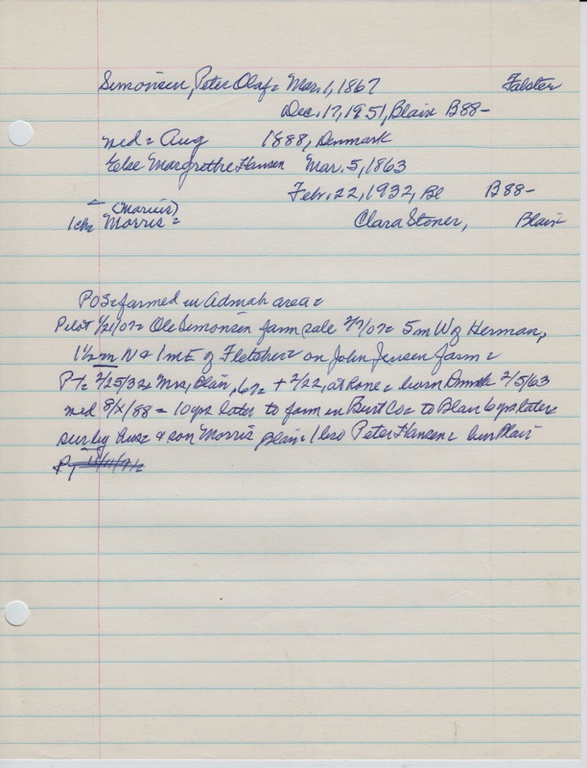 Simonsen, Peter Olaf = Mar. 1, 1867 Falster
Dec. 17, 1951, Blair B88-
med = Aug 1888, Denmark
Else Margrethe Hansen Mar. 5, 1863
Febr. 22, 1932, Bl B88-
(Marius)
1 ch = Morris = Clara Stoner, Blair
POS = farmed in Admah area =
Pilot 1/21/07 = Ole Simonsen farm sale 2/7/07 = 5 m W of Herman,
1 1/2 m N & 1 m E of Fletcher = on John Jensen farm =
PT = 2/25/32, Mrs, Blair, 67 = + 2/22, at home = born Dmk 2/5/63
med 8/X/88 = 10 yrs later to farm in Burt Co = to Blair 6 yrs later =
sur by hus = & son Morris Blair = 1 bro Peter Hansen = bur Blair
PT